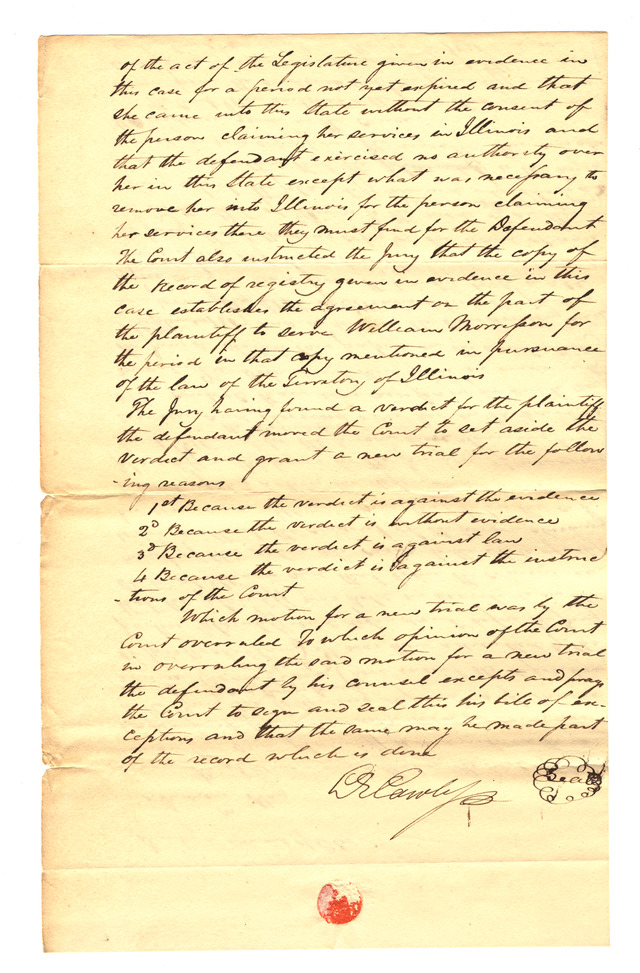 of the act of the Legislature given in evidence in
this case for a period not yet expired and that
she came into this State without the consent of
the person claiming her services in Illinois and
that the defendant exercised no authority over
her in this State except what was necessary to
remove her into Illinois for the person claiming
her services there they must find for the Defendant
The Court also instructed the Jury that the copy of
the record of registry given in evidence in this
case establishes the agreement on the part of
the plaintiff to serve William Morrisson for
the period in that copy mentioned in pursuance
of the law of the Territory of Illinois
The Jury having found a verdict for the plaintiff
the defendant moved the Court to set aside the
verdict and grant a new trial for the follow
-ing reasons
1st Because the verdict is against the evidence
2d Because the verdict is without evidence
3d Because the verdict is against law
4 Because the verdict is against the instruc
-tions of the Court
Which motion for a new trial was by the
Court overruled To which opinion of the Court
in overruling the said motion for a new trial
the defendant by his counsel excepts and prays
the Court to sign and seal this his bill of ex-
ceptions and that the same may be made part
of the record which is done
Seal